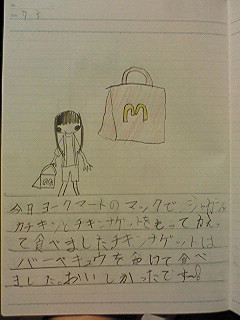 M
今日ヨークマートのマックで、シャカシャ
カチキンとチキンナゲットをもってかえっ
て食べましたチキンナゲットは
バーベキュウを付けて食べ
ました。おいしかったです〜!